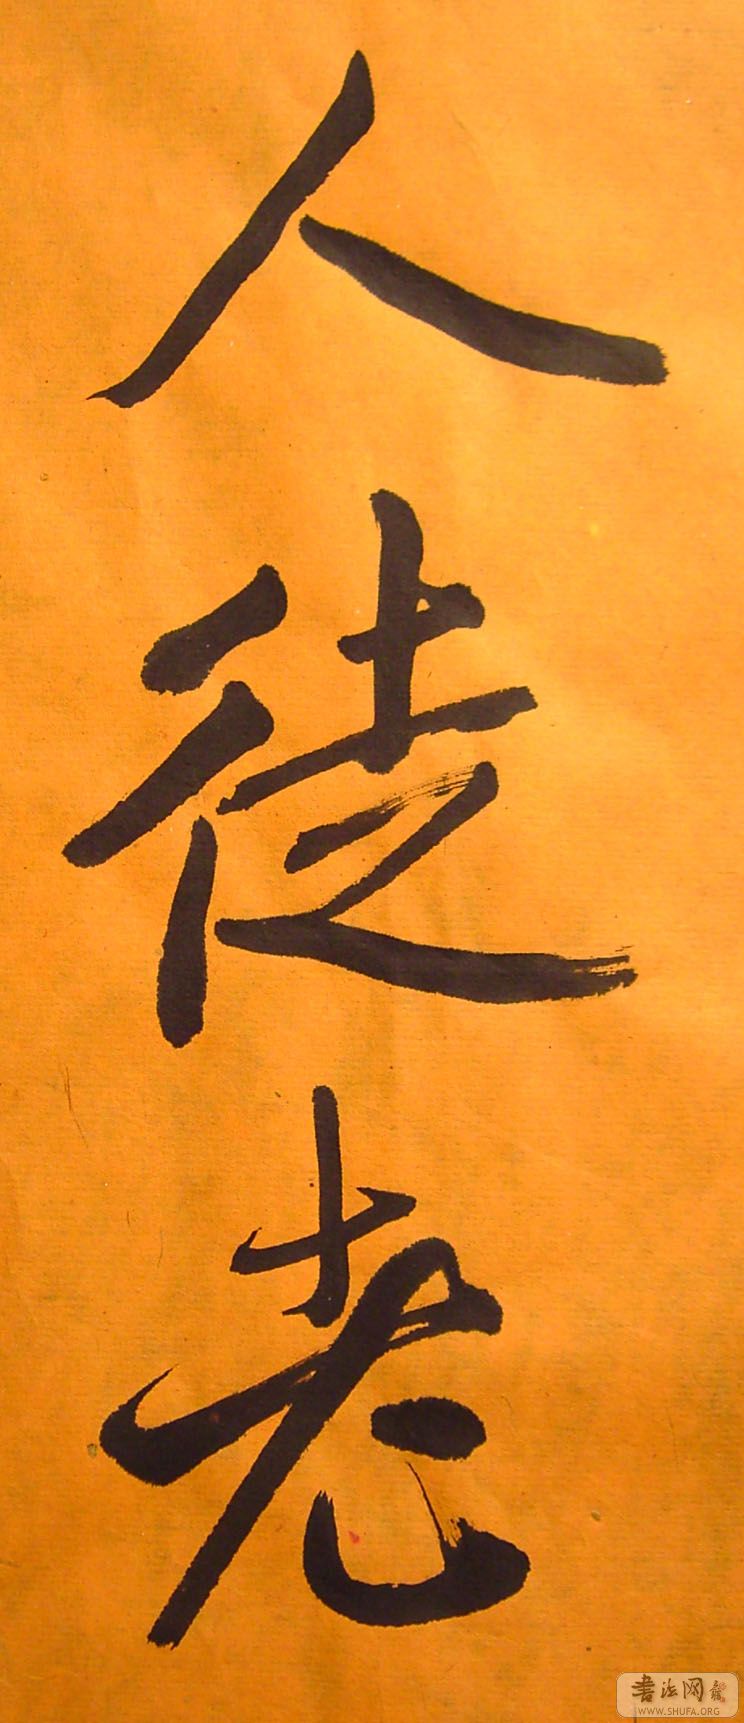 人徒老
書法网
WWW.SHUFA.ORG